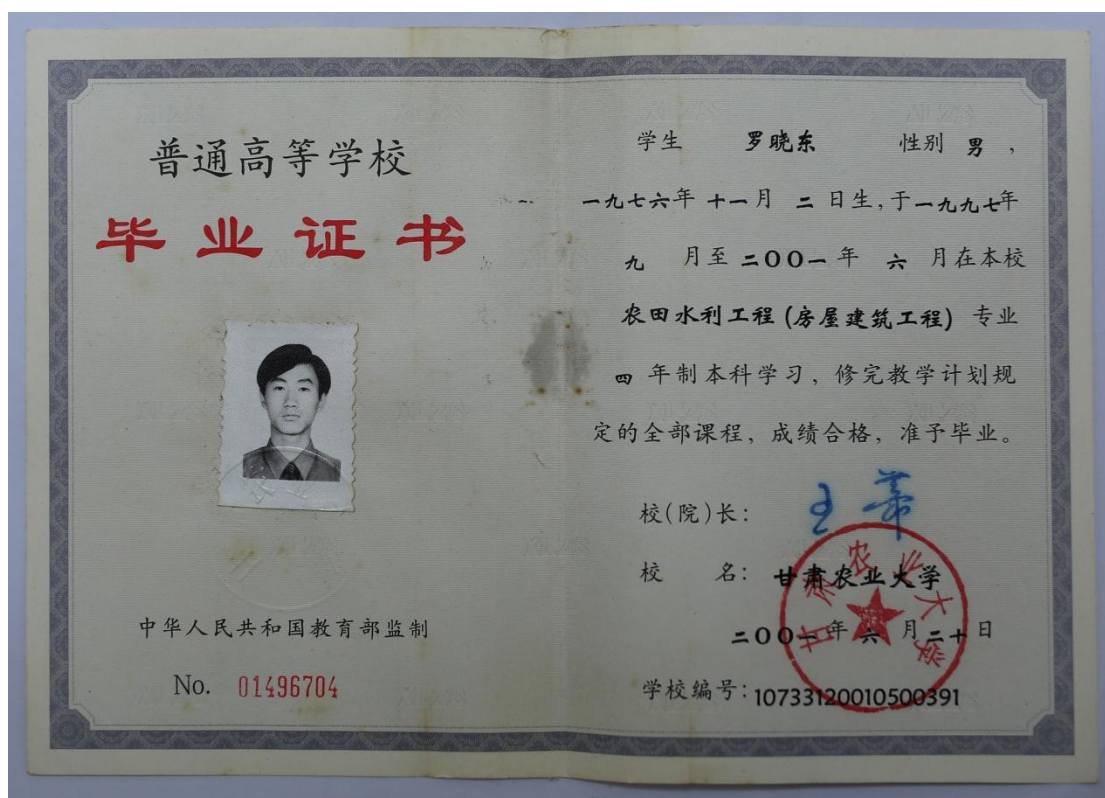 普通高等学校
毕业证书
中华人民共和国教育部监制
No. 01496704
学生 罗晓东 性别 男,
一九七六年十一月二日生,于一九九七年
九月至二00一年六月在本校
农田水利工程(房屋建筑工程)专业
四年制本科学习,修完教学计划规
定的全部课程,成绩合格,准予毕业。
校(院)长:
校 名:甘肃农业大学
甘肃农业大学
二00一年六月二十日
学校编号:10733120010500391